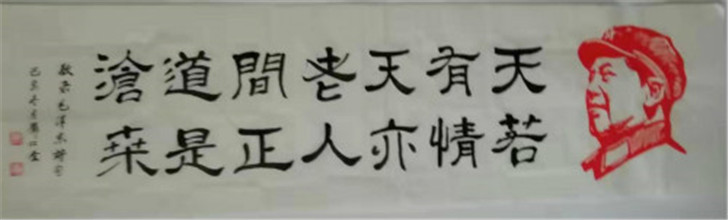 天若
有情
天亦
老人
間正
道是
滄桑
敬录毛澤东詩句
己亥冬月